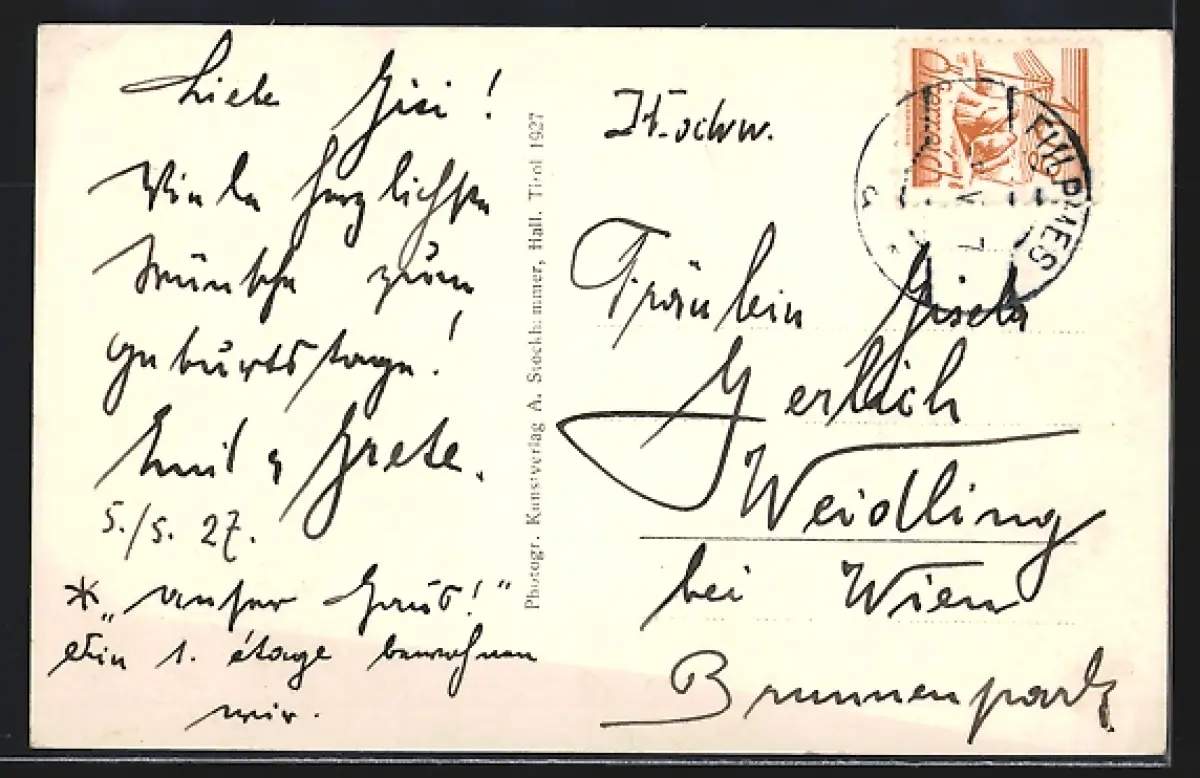 Liebe Gisi!
Viele herzlichste
Wünsche zum
Geburtstage!
Emil & Grete.
5./5. 27.
* „unser Haus!“
die 1. étage bewohnen
wir.
Photogr. Kunstverlag A. Stockhammer, Hall, Tirol 1927
Fräulein Gisela
Gerlich
Weidling
bei Wien
Brunnenpark
10 Groschen
FULPMES